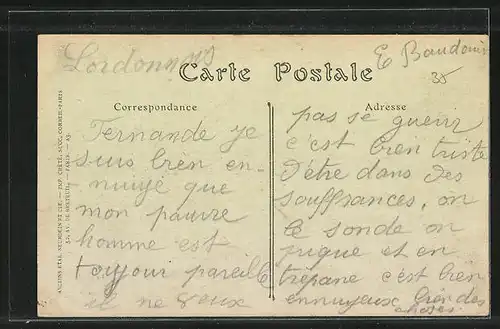 Lordonnois
E Baudouin
35
Carte Postale
Correspondance
Adresse
Fernande je
suis bien en-
nuiyé que
mon pauvre
homme est
toujour pareille
il ne veux
pas se guerir
c'est bien triste
d'être dans des
souffrances, on
le sonde on
pique et en
trépane c'est bien
ennuyeux bien des
choses
ANCIENS ETAB. NEURDEIN ET CIE. — IMP. CRÉTÉ, SUCC. CORBEIL-PARIS
52, AV. DE BRETEUIL. — PARIS.